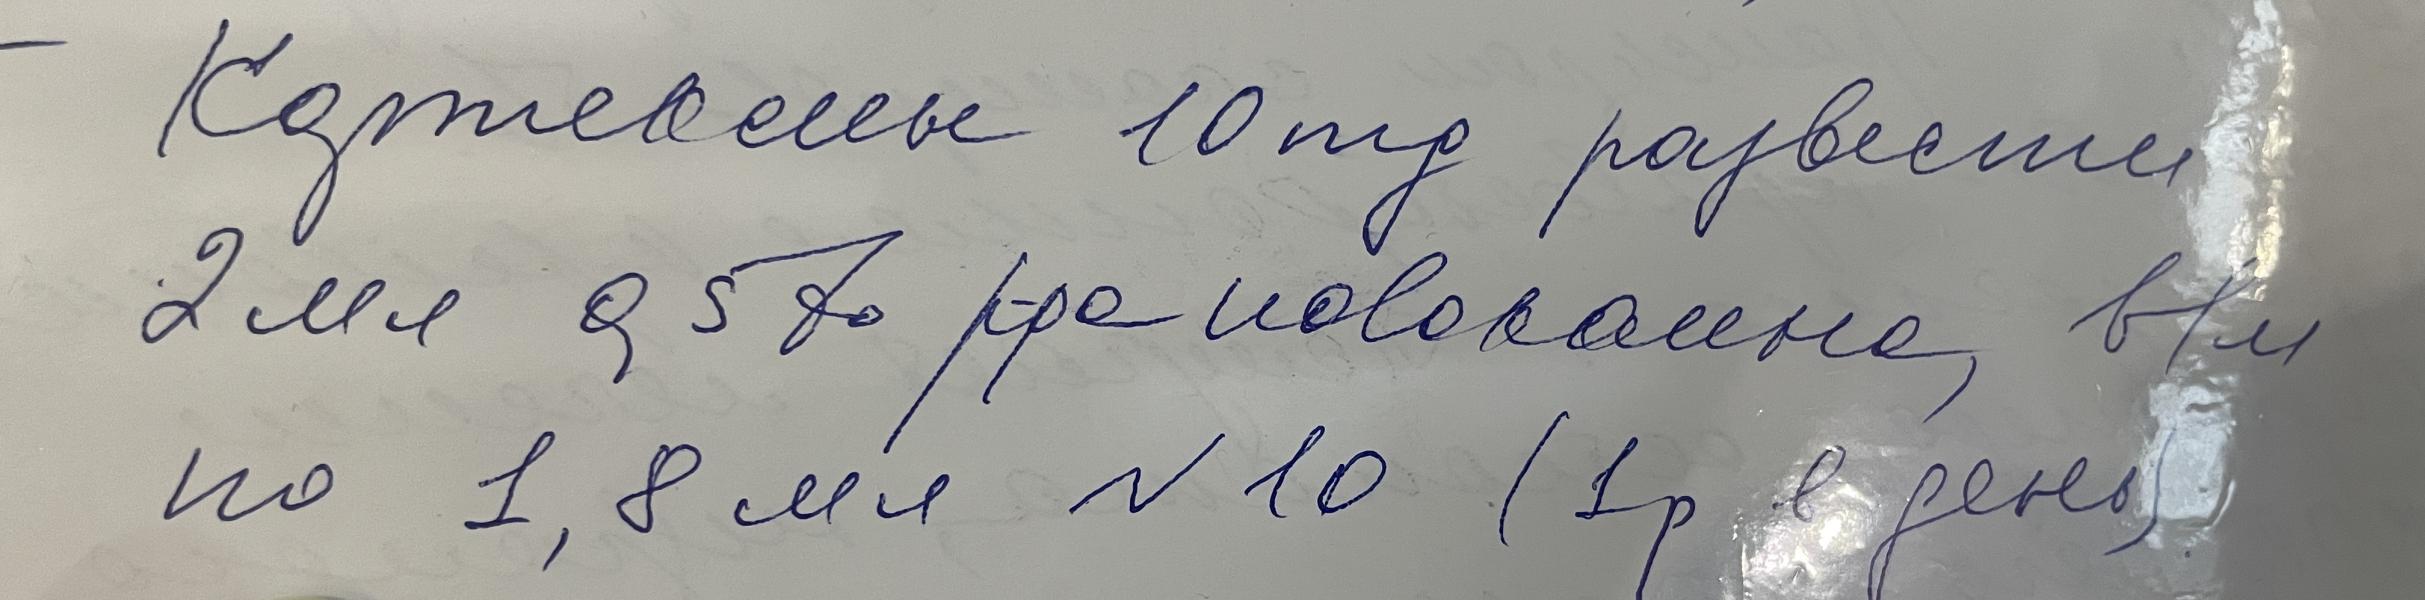 - Кортексин 10 mg развести
2 мл 0,5 % р-ра новокаина, в/м
по 1,8 мл N 10 (1 р в день)